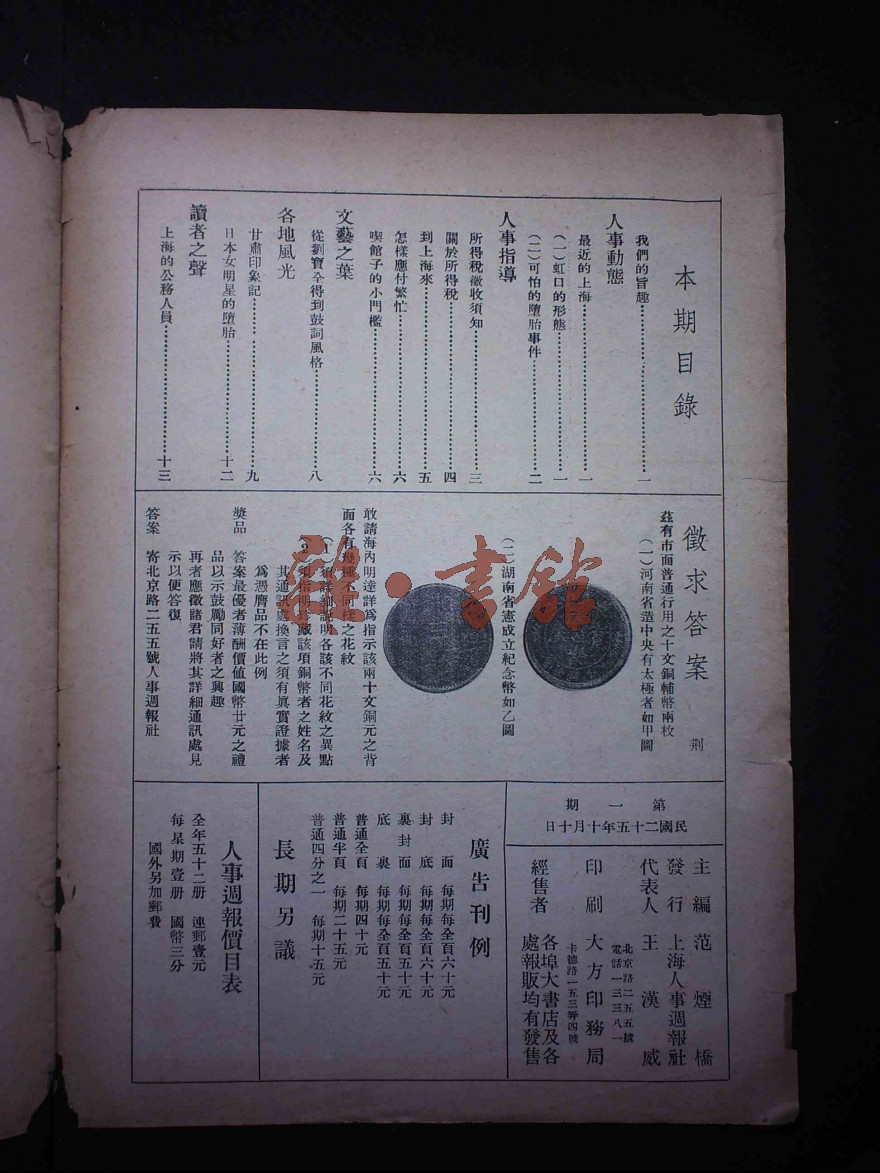 本期目錄
我們的旨趣………一
人事動態
最近的上海………一
（一）虹口的形態………一
（二）可怕的墮胎事件………二
人事指導
所得稅徵收須知………三
關於所得稅………四
到上海來………五
怎樣應付繁忙………六
喫館子的小門檻………六
文藝之葉
從劉寶全得到鼓詞風格………八
各地風光
甘肅印象記………九
日本女明星的墮胎………十二
讀者之聲
上海的公務人員………十三
徵求答案 荆
茲有市面普通行用之十文銅輔幣兩枚
（一）河南省造中央有太極者如甲圖
（二）湖南省憲成立紀念幣如乙圖
敢請海內明達詳爲指示該兩十文銅元之背
面各有幾種不同樣之花紋
（1）須詳細說明各該不同花紋之異點
2 須指明珍藏該項銅幣者之姓名及
其通訊處換言之須有眞實證據者
爲憑膺品不在此例
獎品 答案最優者薄酬價值國幣廿元之禮
品以示鼓勵同好者之興趣
再者應徵諸君請將其詳細通訊處見
示以便答復
答案 寄北京路二五五號人事週報社
雜·書館
第一期
民國二十五年十月十日
主編 范煙橋
發行 上海人事週報社
代表人 王漢威
北京路二五五號
電話一三三八一
印刷 大方印務局
卡德路一五三弄四號
經售者 各埠大書店及各
處報販均有發售
廣告刊例
封面 每期每全頁六十元
封底 每期每全頁六十元
裏封面 每期每全頁五十元
底裏 每期每全頁五十元
普通全頁 每期四十元
普通半頁 每期二十五元
普通四分之一 每期十五元
長期另議
人事週報價目表
全年五十二册 連郵壹元
每星期壹册 國幣三分
國外另加郵費